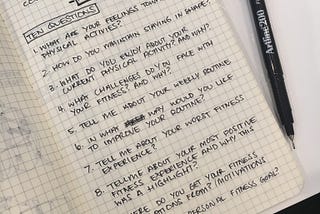 TEN QUESTIONS
1. WHAT ARE YOUR FEELINGS TOWARDS
PHYSICAL ACTIVITIES?
2. HOW DO YOU MAINTAIN STAYING IN SHAPE?
3. WHAT DO YOU ENJOY ABOUT YOUR
CURRENT PHYSICAL ACTIVITY? AND WHY?
4. WHAT CHALLENGES DO YOU FACE WITH
YOUR FITNESS? AND WHY?
5. TELL ME ABOUT YOUR WEEKLY ROUTINE
6. IN WHAT WAY WOULD YOU LIKE
TO IMPROVE YOUR ROUTINE?
7. TELL ME ABOUT YOUR WORST FITNESS
EXPERIENCE?
8. TELL ME ABOUT YOUR MOST POSITIVE
FITNESS EXPERIENCE AND WHY THIS
WAS A HIGHLIGHT?
HERE DO YOU GET YOUR FITNESS
ATIONS FROM? / MOTIVATIONS
PERSONAL FITNESS GOAL?
Artline 200